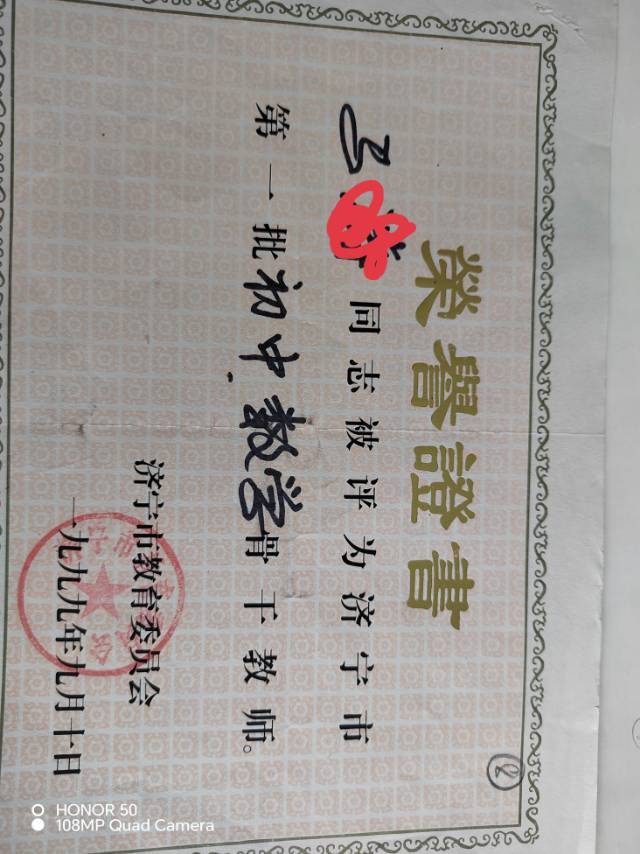 榮譽證書
同志被评为济宁市
第一批初中数学骨干教师。
济宁市教育委员会
一九九九年九月十日
②
HONOR 50
108MP Quad Camera